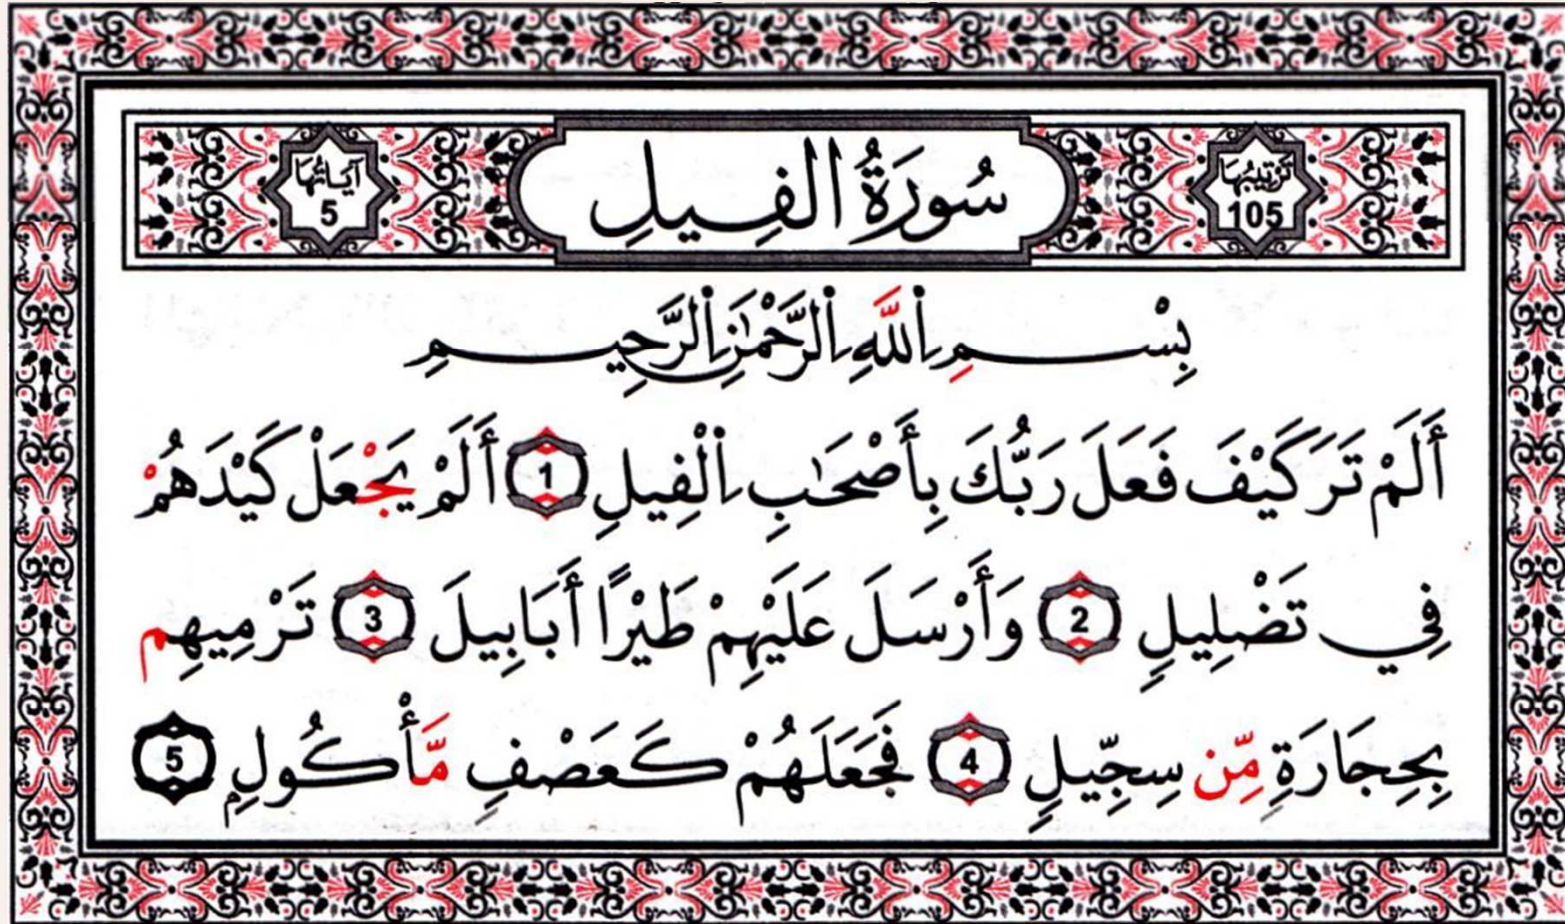 ترتيبها
105
سُورَةُ الْفِيلِ
آيَاتُهَا
5
بِسْمِ اِ۬للَّهِ اِ۬لرَّحْمَٰنِ اِ۬لرَّحِيمِ
أَلَمْ تَرَ كَيْفَ فَعَلَ رَبُّكَ بِأَصْحَٰبِ اِ۬لْفِيلِ 1 أَلَمْ يَجْعَلْ كَيْدَهُمْ
فِي تَضْلِيلٍ 2 وَأَرْسَلَ عَلَيْهِمْ طَيْرًا أَبَابِيلَ 3 تَرْمِيهِم
بِحِجَارَةٍ مِّن سِجِّيلٍ 4 فَجَعَلَهُمْ كَعَصْفٍ مَّأْكُولٍ 5